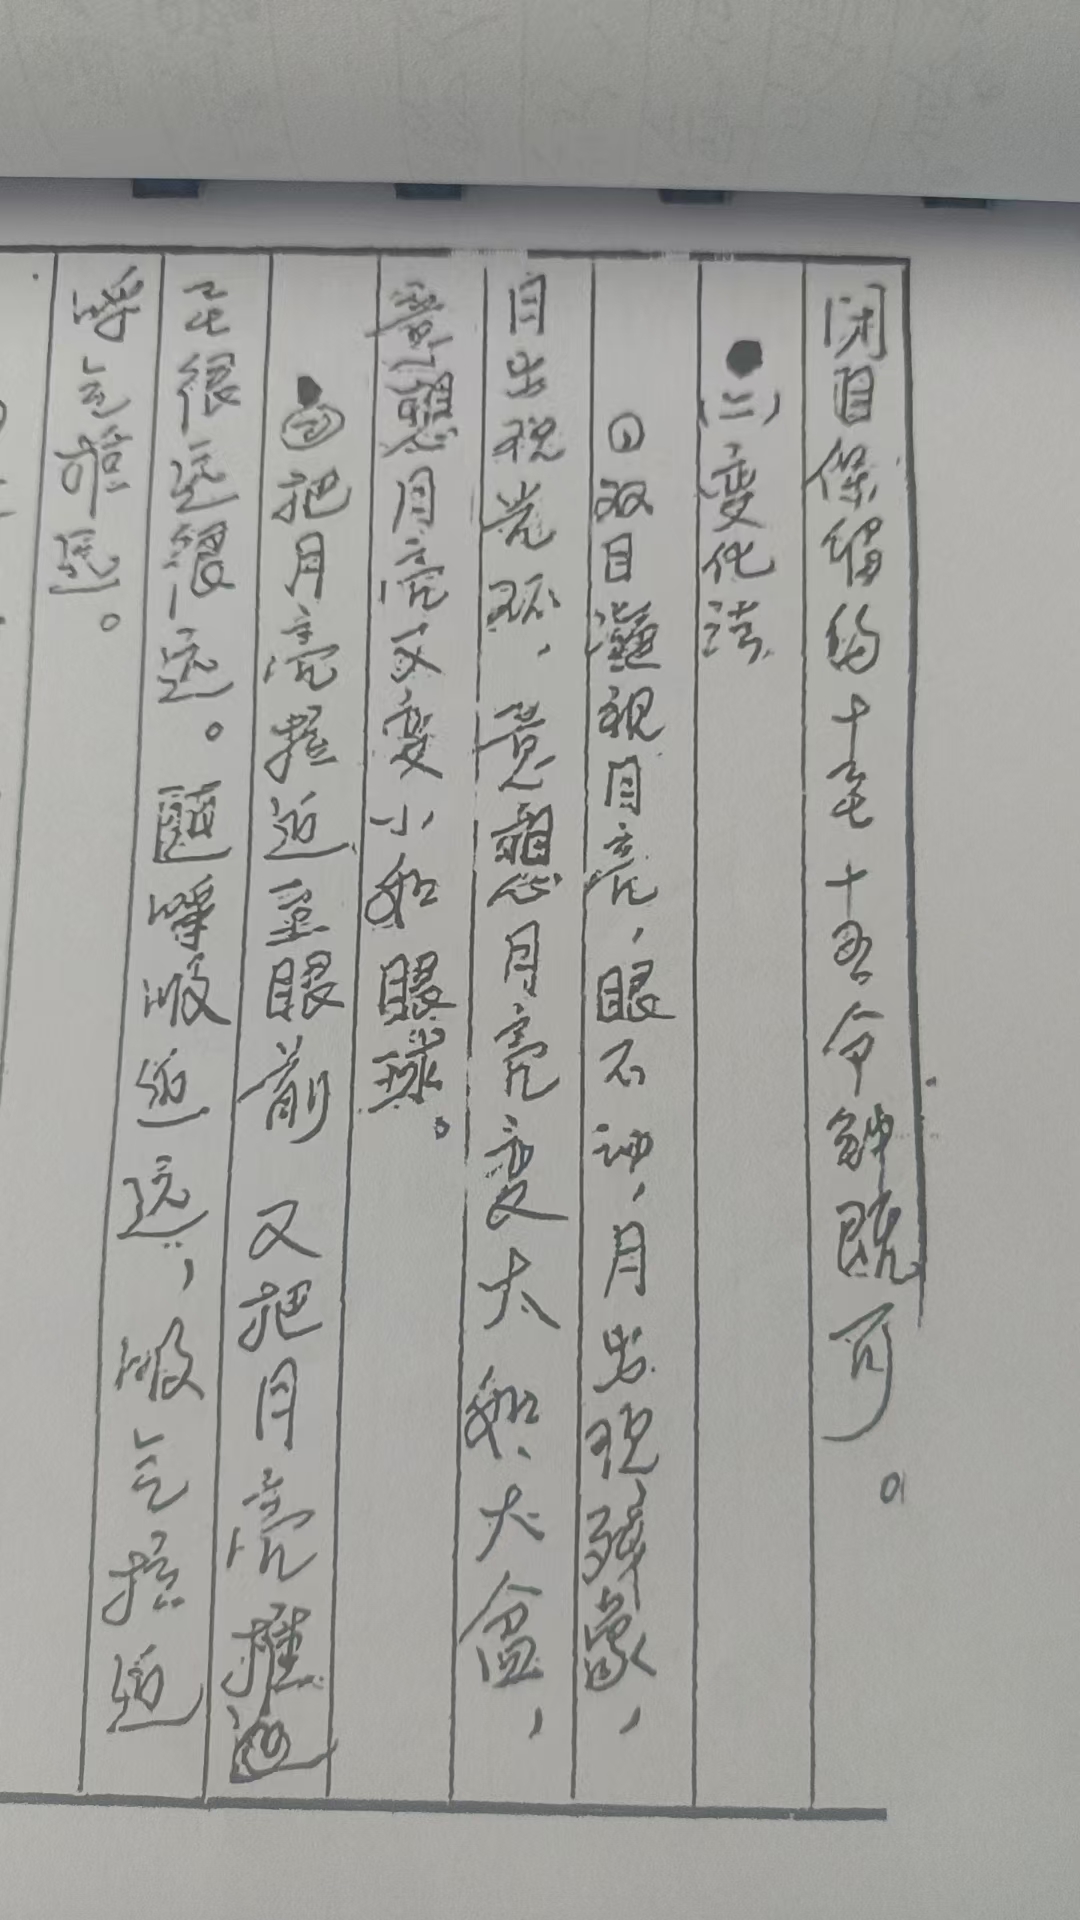 闭目保留约十至十五分钟既可。
(二)变化法
①双目凝视月亮，眼不动，月出现残象，
月出现光环，意想月亮变大如大盆，
意想月亮又变小如眼球。
②把月亮拉近至眼前 又把月亮推
至很远很远。随呼吸近远，吸气拉近
呼气推远。